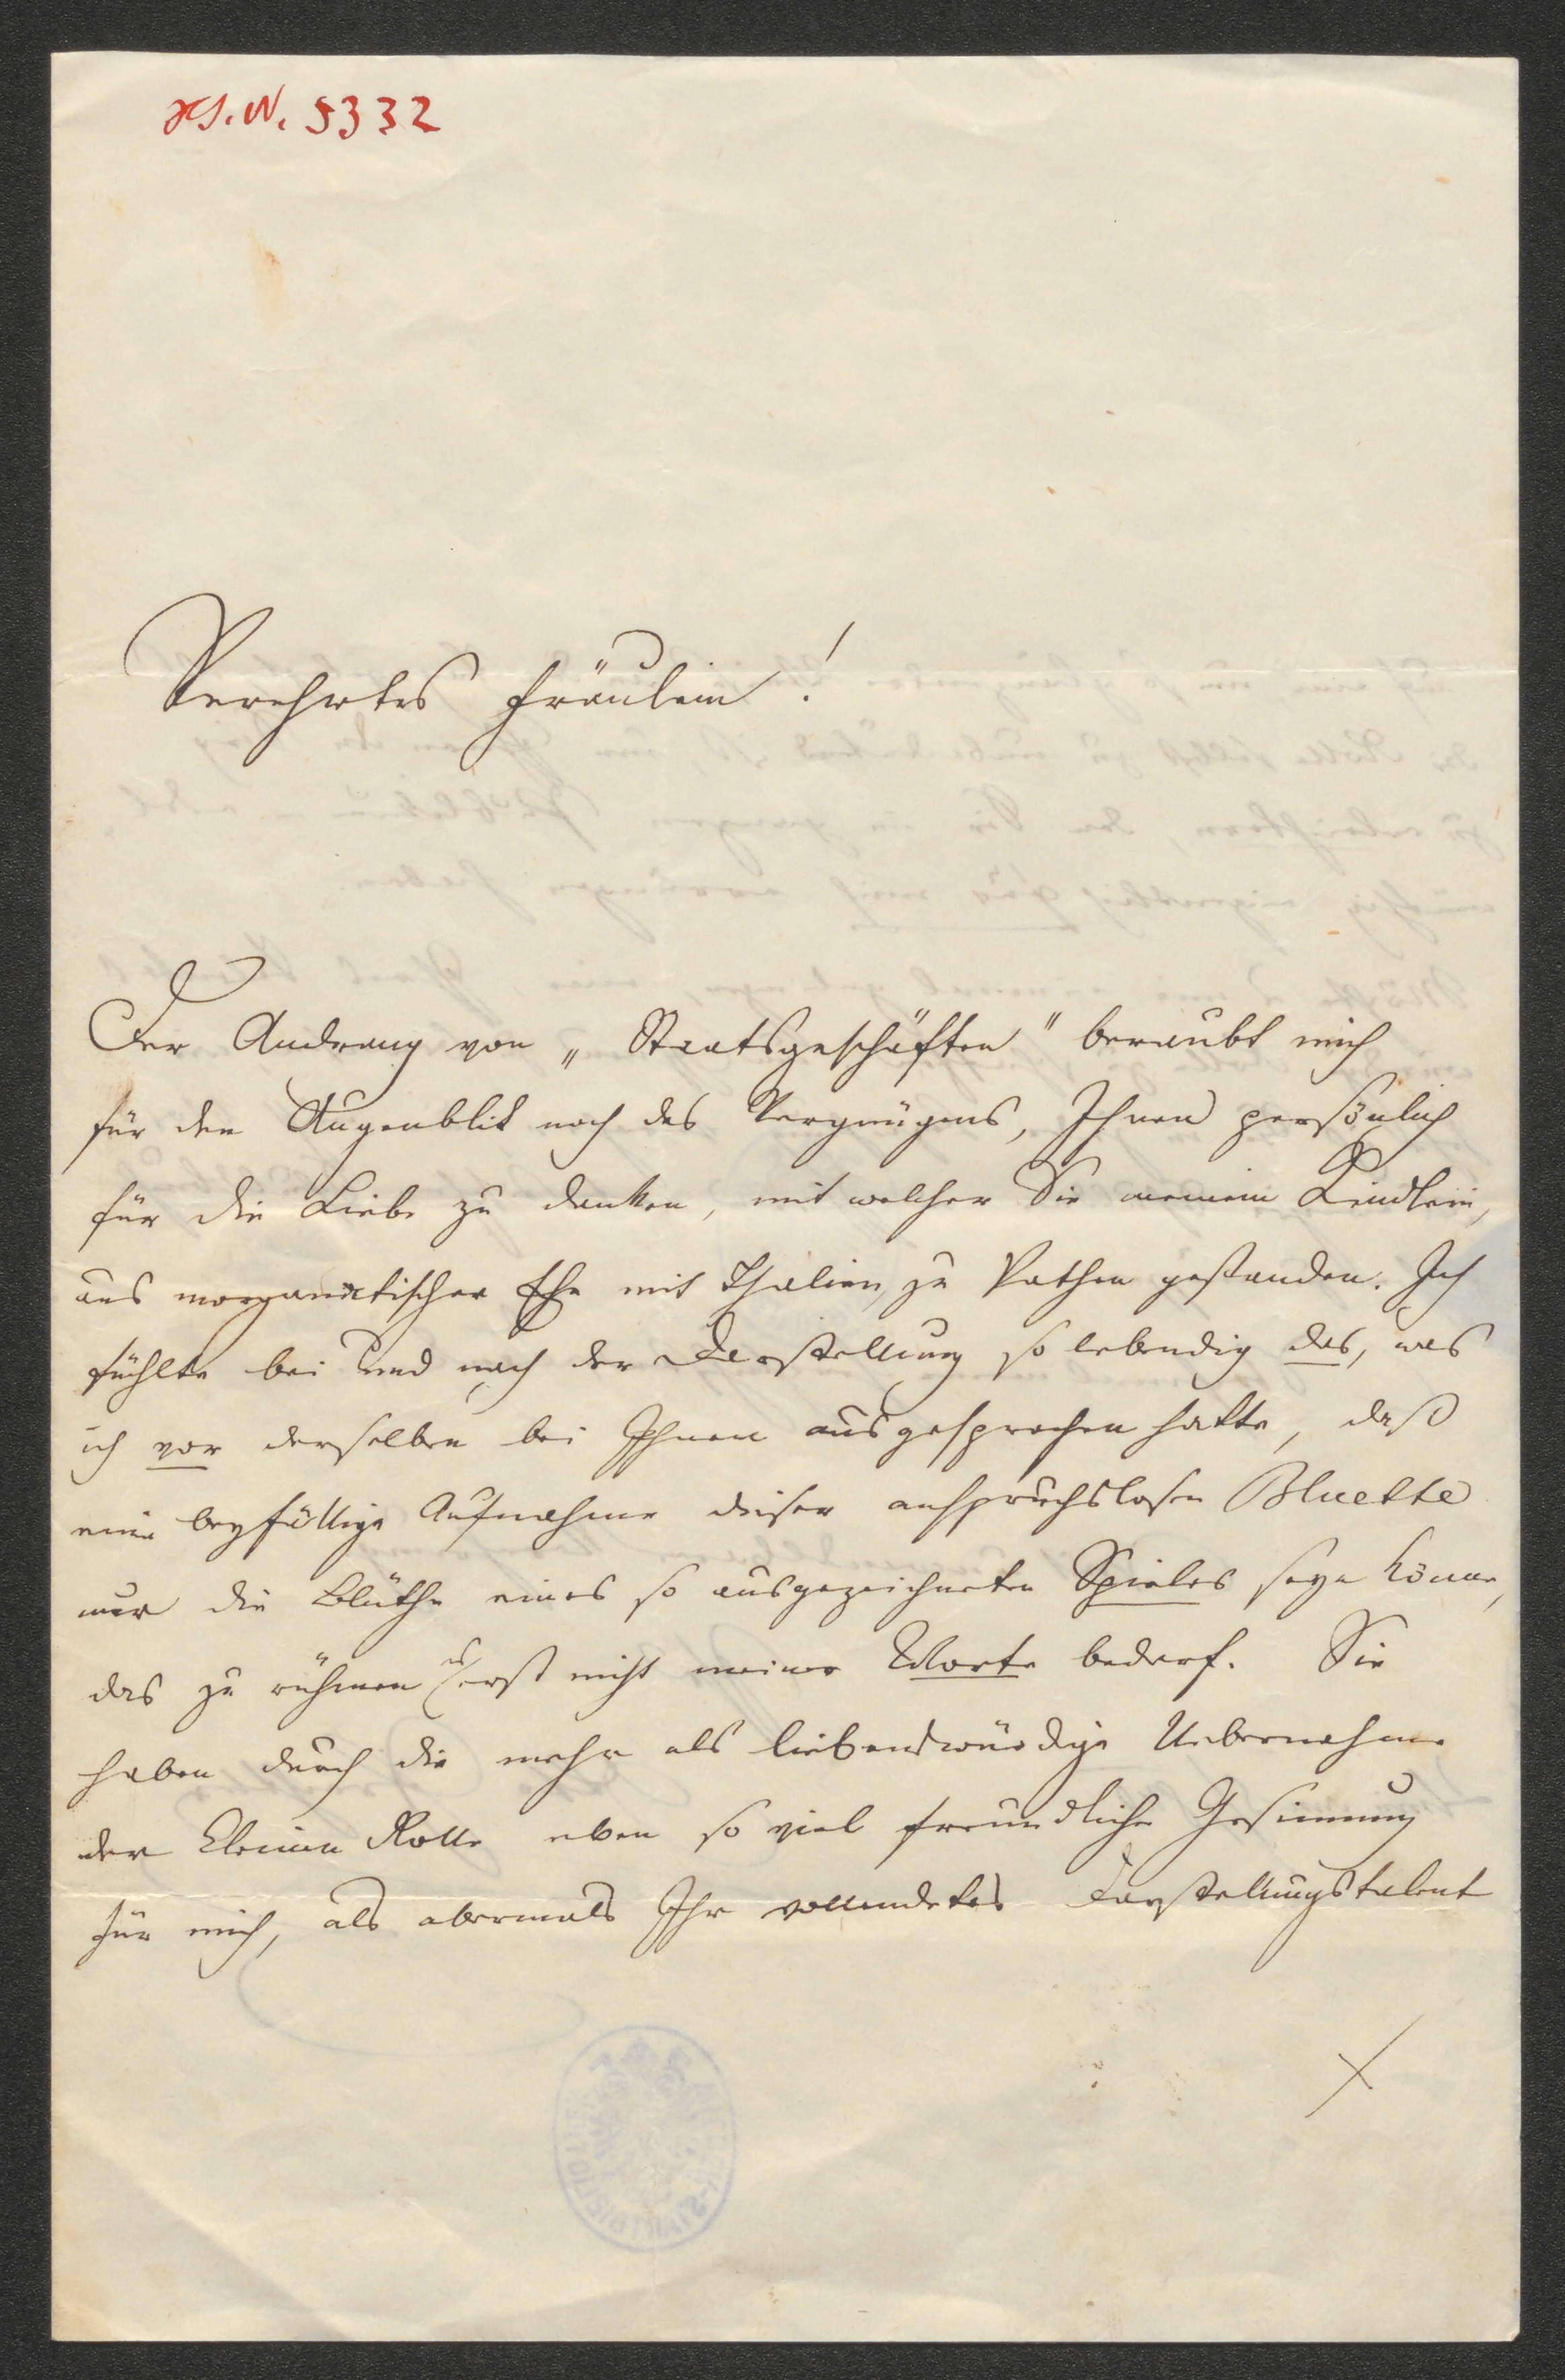 H.I.N. 5332
Verehrtes Fräulein!
Der Andrang von „Staatsgeschäften" beraubt mich
für den Augenblik noch des Vergnügens, Ihnen persönlich
für die Liebe zu danken, mit welcher Sie meinem Kindlein,
aus morganatischer Ehe mit Thalien, zu Pathen gestanden. Ich
fühlte bei und nach der Darstellung so lebendig das, was
ich vor derselben bei Ihnen ausgesprochen hatte, daß
eine beyfällige Aufnahme dieser anspruchslosen Bluette
nur die Blüthe eines so ausgezeichneten Spieles seyn könne,
das zu rühmen es erst nicht meiner Worte bedarf. Sie
haben durch die mehr als liebenswürdige Uebernahme
der kleinen Rolle eben so viel freundliche Gesinnung
für mich, als abermals Ihr vollendetes Darstellungstalent